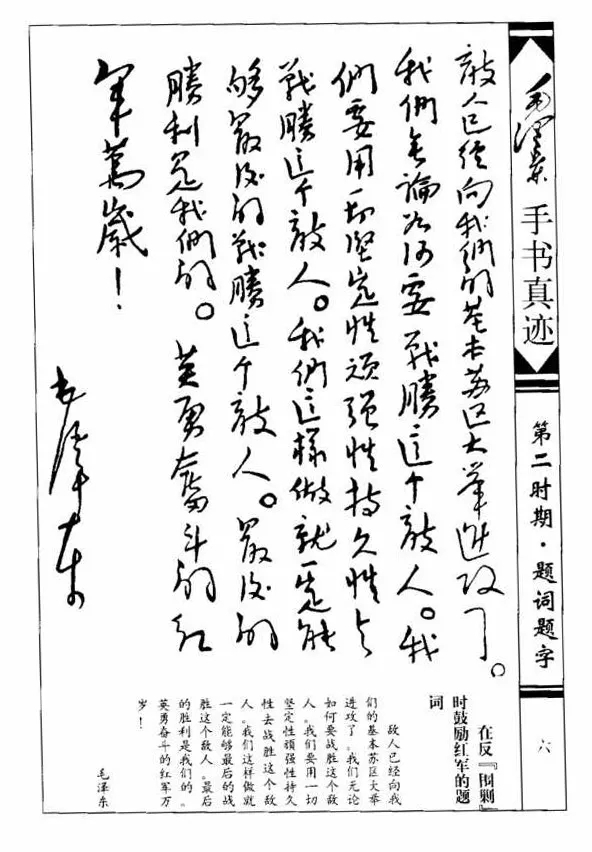 毛泽东手书真迹
第二时期·题词题字
六
敵人已经向我们的基本苏区大举进攻了。
我們無論如何要战勝这个敵人。我
們要用一切坚定性顽强性持久性去
战勝这个敵人。我們这樣做就一定能
够最后的战勝这个敵人。最后的
勝利是我們的。英勇奮斗的红
军萬歲！
毛澤东
在反『围剿』
时鼓励红军的题
词
敌人已经向我
们的基本苏区大举
进攻了。我们无论
如何要战胜这个敌
人。我们要用一切
坚定性顽强性持久
性去战胜这个敌
人。我们这样做就
一定能够最后的战
胜这个敌人。最后
的胜利是我们的。
英勇奋斗的红军万
岁！
毛泽东